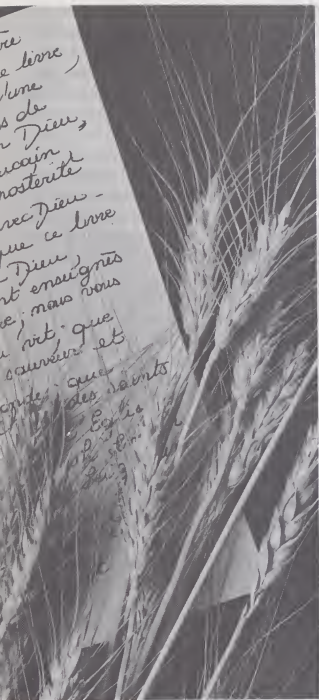 re
e livre
d'une ,
s de
n Dieu,
ucain
postérité
vec Dieu -
que ce livre
Dieu,
nt enseignés
ve ; nous vous
vit ; que
sauveur et
onde ; que
des saints